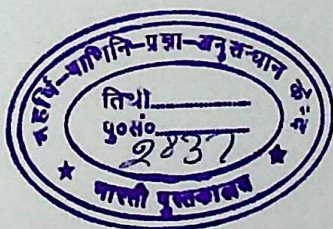 महर्षि-पाणिनि-प्रज्ञा-अनुसन्धान केन्द्र
तिथी..............
पु०सं०..............
2837
★ भारती पुस्तकालय ★